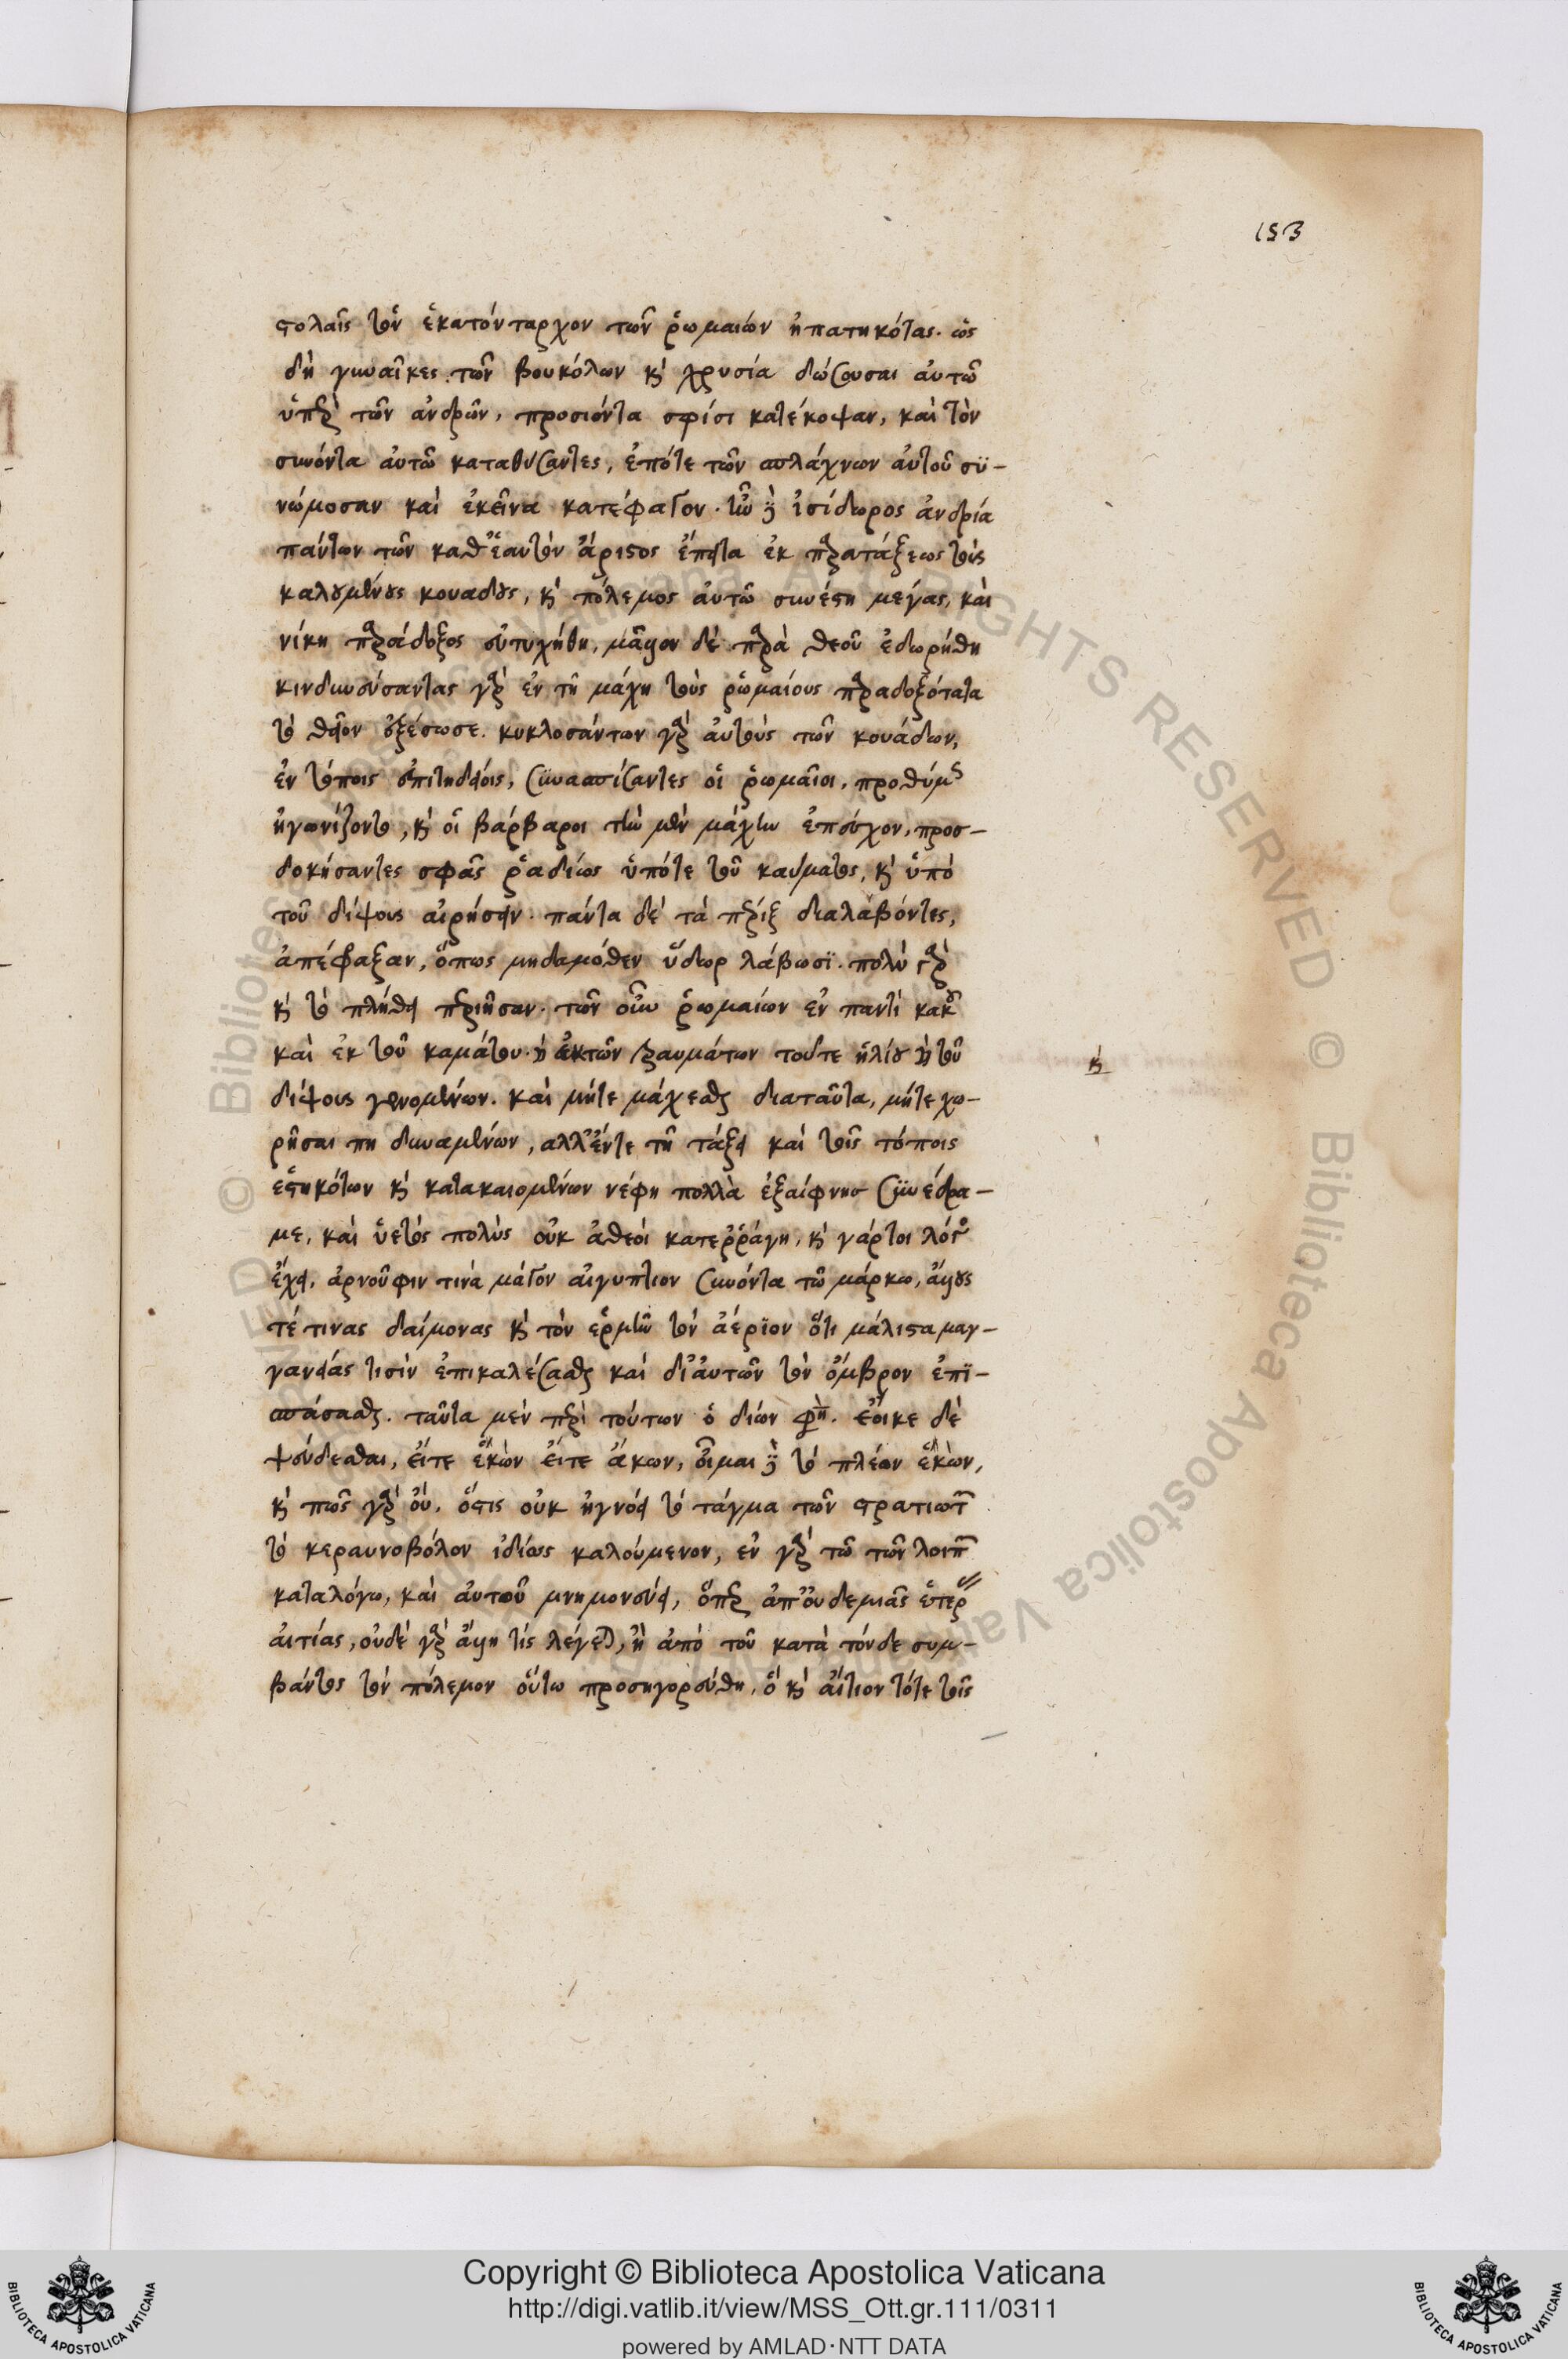 153
στολαῖς τὸν ἑκατόνταρχον τῶν ῥωμαίων ἠπατηκότας. ὡς
δὴ γυναῖκες τῶν βουκόλων κ̀ χρυσία δώσουσαι αὐτῶ
ὑπὲρ τῶν ἀνδρῶν, προσιόντα σφίσι κατέκοψαν, καὶ τὸν
συνόντα αὐτῶ καταθύσαντες, ἐπότε τῶν σπλάχνων αὐτοῦ συ-
νώμοσαν καὶ ἐκεῖνα κατέφαγον. ἦν δὲ ἰσίδωρος ἀνδρία
πάντων τῶν καθ' ἑαυτὸν ἄριστος ἔπειτα ἐκ παρατάξεως τοὺς
καλουμένους κουάδους, κ̀ πόλεμος αὐτῶ συνέστη μέγας, καὶ
νίκη παράδοξος εὐτυχήθη, μᾶλλον δὲ παρὰ θεοῦ ἐδωρήθη
κινδυνεύσαντας γὰρ ἐν τῆ μάχη τοὺς ῥωμαίους παραδοξότατα
τὸ θεῖον ἐξέσωσε. κυκλοσάντων γὰρ αὐτοὺς τῶν κουάδων,
ἐν τόποις ἐπιτηδείοις, συνασπίσαντες οἱ ῥωμαῖοι, προθύμως
ἠγωνίζοντο, κ̀ οἱ βάρβαροι τὴν μὲν μάχην ἐπεῦχον, προσ-
δοκήσαντες σφᾶς ῥαδίως ὑπότε τοῦ καύματος, κ̀ ὑπὸ
τοῦ δίψους αἱρήσειν. πάντα δὲ τὰ πέριξ διαλαβόντες,
ἀπέφραξαν, ὅπως μηδαμόθεν ὕδωρ λάβωσϊ. πολὺ γὰρ
κ̀ τὸ πλήθει περιῆσαν. τῶν οὖν ῥωμαίων ἐν παντὶ κακοῦ
καὶ ἐκ τοῦ καμάτου. κ̀ ἐκτῶν τραυμάτων τοῦτε ἡλίου κ̀ τοῦ
δίψους γενομένων. καὶ μήτε μάχεσθαι διαταῦτα, μήτε χω-
ρῆσαι πη δυναμένων, ἀλλ' ἔντε τῆ τάξει καὶ τοῖς τόποις
ἑστηκότων κ̀ κατακαιομένων νέφη πολλὰ ἐξαίφνης συνέδρα-
με, καὶ ὑετὸς πολὺς οὐκ ἀθεοὶ κατερράγη, κ̀ γάρτοι λόγος
ἔχει, ἀρνοῦφιν τινὰ μάγον αἰγύπτιον συνόντα τῶ μάρκω, ἄλλους
τέ τινας δαίμονας κ̀ τὸν ἑρμῆν τὸν ἀέριον ὅτι μάλιστα μαγ-
γανείαις τισὶν ἐπικαλέσασθαι καὶ δι' αὐτῶν τὸν ὄμβρον ἐπϊ-
σπάσασθαι. ταῦτα μὲν περὶ τούτων ὁ δίων φησὶν. ἔοικε δὲ
ψεύδεσθαι, εἴτε ἑκὼν εἴτε ἄκων, οἶμαι δὲ τὸ πλέον ἑκὼν,
κ̀ πῶς γὰρ οὔ. ὅστις οὐκ ἠγνόει τὸ τάγμα τῶν στρατιωτῶν
τὸ κεραυνοβόλον ἰδίως καλούμενον, ἐν γὰρ τῶ τῶν λοιπῶν
καταλόγω, καὶ αὐτοῦ μνημονεύει, ὅπερ ἀπ' οὐδεμιᾶς ἑτέρας
αἰτίας, οὐδὲ γὰρ ἄλλη τις λέγεται, ἢ ἀπὸ τοῦ κατὰ τόνδε συμ-
βάντος τὸν πόλεμον οὕτω προσηγορεύθη, ὃ κ̀ αἴτιον τότε τοῖς
κ̀
Copyright © Biblioteca Apostolica Vaticana
http://digi.vatlib.it/view/MSS_Ott.gr.111/0311
powered by AMLAD·NTT DATA